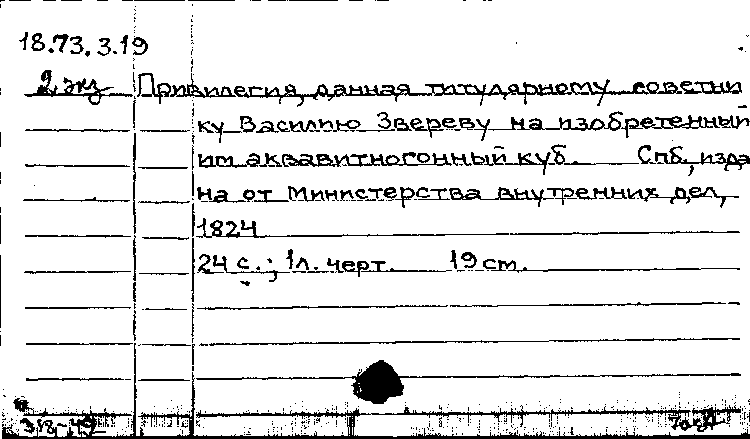 18.73.3.19
2 экз Привилегия, данная титулярному советни
ку Василию Звереву на изобретенный
им аквавитногонный куб. Спб., изда
на от Министерства внутренних дел,
1824
24 с.; 1л. черт. 19 cm.